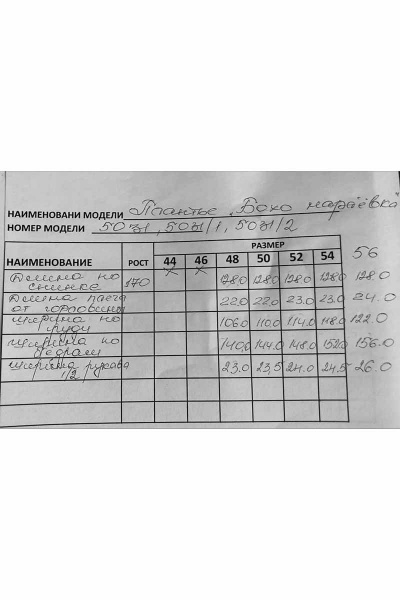 НАИМЕНОВАНИ МОДЕЛИ Платье "Бохо марлёвка"
НОМЕР МОДЕЛИ 5071, 5071/1, 5071/2
РАЗМЕР
НАИМЕНОВАНИЕ РОСТ 44 46 48 50 52 54 56
Длина по спинке 170 128.0 128.0 128.0 128.0 128.0
Длина плеча от горловины 22.0 22.0 23.0 23.0 24.0
Ширина по груди 106.0 110.0 114.0 118.0 122.0
Ширина по бедрам 140.0 144.0 148.0 152.0 156.0
Ширина рукава 1/2 23.0 23,5 24.0 24.5 26.0